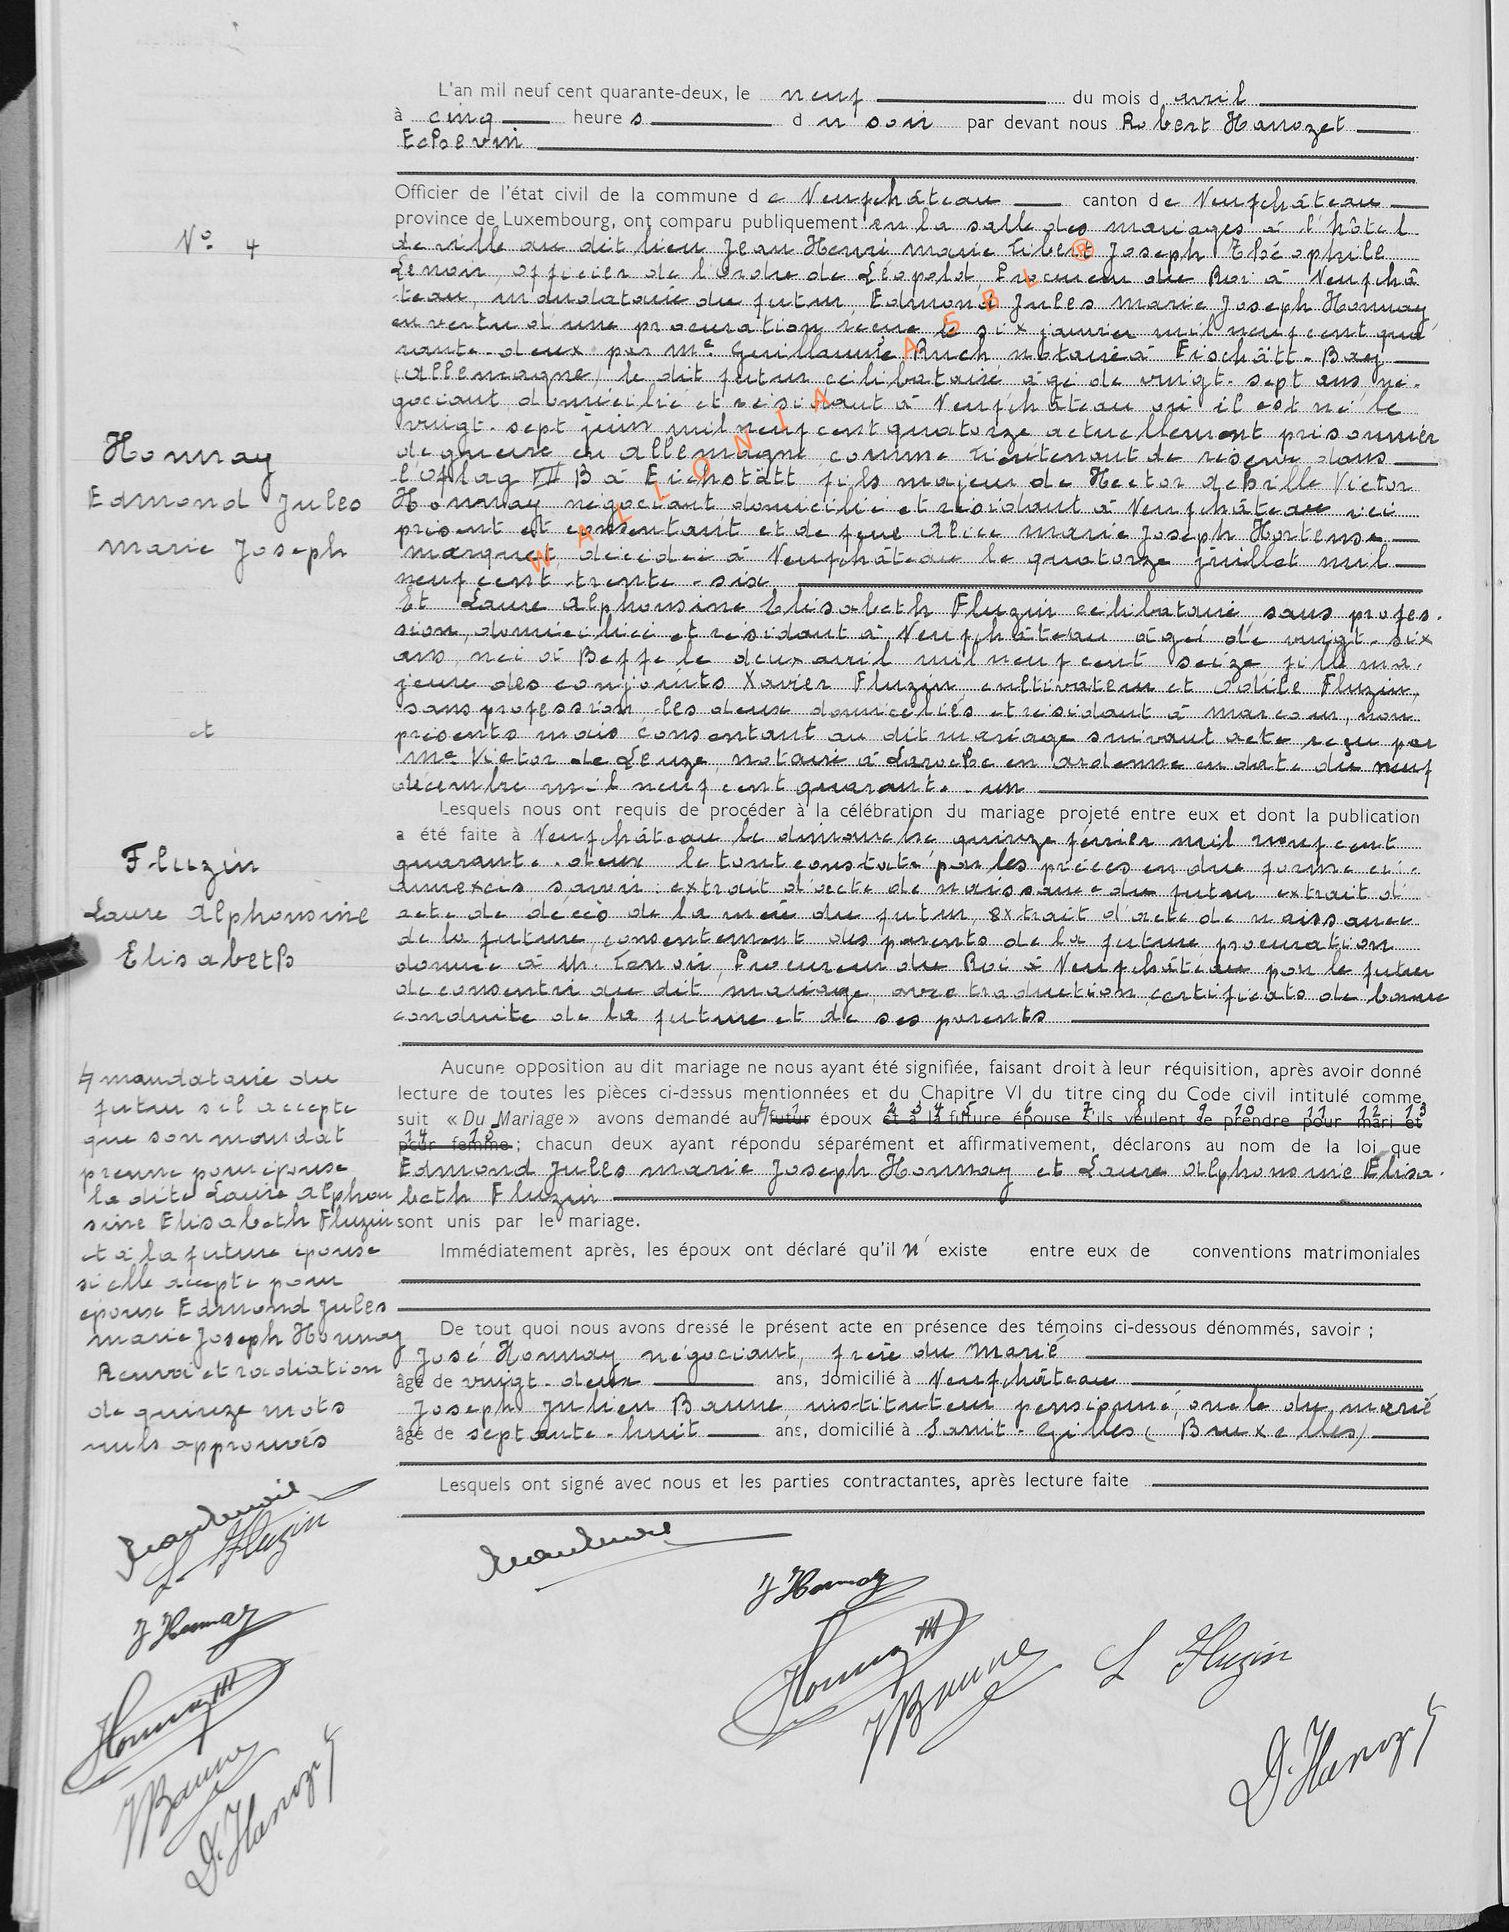 L'an mil neuf cent quarante-deux, le neuf du mois d avril
à cinq heure s d u soir par devant nous Robert Hanozet
Echevin
Officier de l'état civil de la commune d e Neufchâteau canton de Neufchâteau
province de Luxembourg, ont comparu publiquement en la salle des mariages à l'hôtel
de ville au dit lieu Jean Henri Marie Libert Joseph Théophile
Lenoir, officier de l'ordre de Léopold, Procureur du Roi à Neufchâ
teau, mandataire du futur Edmond Jules Marie Joseph Honnay
en vertu d'une procuration reçue le six janvier mil neuf cent qua
rante-deux par Me Guillaume Ruch notaire à Eischätt-Bay
(Allemagne) le dit futur célibataire âgé de vingt-sept ans né-
gociant domicilié et résidant à Neufchâteau où il est né le
vingt-sept juin mil neuf cent quatorze actuellement prisonnier
de guerre en Allemagne comme lieutenant de réserve dans
l'Oflag VII B à Eichstätt fils majeur de Hector Achille Victor
Honnay négociant domicilié et résidant à Neufchâteau ici
présent et consentant et de feue Alice Marie Joseph Hortense
Marquet, décédée à Neufchâteau le quatorze juillet mil
neuf cent trente-six
Et Laure Alphonsine Elisabeth Fluzin célibataire sans profes-
sion, domiciliée et résidant à Neufchâteau âgée de vingt-six
ans, née à Beffe le deux avril mil neuf cent seize fille ma-
jeure des conjoints Xavier Fluzin, cultivateur et Odile Fluzin,
sans profession, les deux domiciliés et résidant à Marcour, non
présents mais consentant au dit mariage suivant acte reçu par
Me Victor de Leuze, notaire à Laroche en Ardenne en date du neuf
décembre mil neuf cent quarante-un
Lesquels nous ont requis de procéder à la célébration du mariage projeté entre eux et dont la publication
a été faite à Neufchâteau le dimanche quinze février mil neuf cent
quarante-deux le tout constaté par les pièces en due forme ci-
annexées savoir: extrait d'acte de naissance du futur extrait d'
acte de décès de la mère du futur, extrait d'acte de naissance
de la future, consentement des parents de la future procuration
donnée à M. Lenoir, Procureur du Roi à Neufchâteau par le futur
de consentir au dit mariage, avec traduction certificats de bonne
conduite de la future et de ses parents
Aucune opposition au dit mariage ne nous ayant été signifiée, faisant droit à leur réquisition, après avoir donné
lecture de toutes les pièces ci-dessus mentionnées et du Chapitre VI du titre cinq du Code civil intitulé comme
suit « Du Mariage » avons demandé au futur époux et à la future épouse s'ils veulent se prendre pour mari et
pour femme ; chacun deux ayant répondu séparément et affirmativement, déclarons au nom de la loi, que
Edmond Jules Marie Joseph Honnay et Laure Alphonsine Elisa-
beth Fluzin
sont unis par le mariage.
Immédiatement après, les époux ont déclaré qu'il n' existe entre eux de conventions matrimoniales
De tout quoi nous avons dressé le présent acte en présence des témoins ci-dessous dénommés, savoir ;
José Honnay négociant, frère du marié
âgé de vingt-deux ans, domicilié à Neufchâteau
Joseph Julien Baune, instituteur pensionné, oncle du marié
âgé de septante-huit ans, domicilié à Saint-Gilles (Bruxelles)
Lesquels ont signé avec nous et les parties contractantes, après lecture faite
J Honnay
Honnay
J Baune
L Fluzin
D. Hanozet
No 4
Honnay
Edmond Jules
Marie Joseph
et
Fluzin
Laure Alphonsine
Elisabeth
mandataire du
futur s'il accepte
que son mandat
prenne pour épouse
la dite Laure Alphon
sine Elisabeth Fluzin
et à la future épouse
si elle accepte pour
époux Edmond Jules
Marie Joseph Honnay
Renvoi et radiation
de quinze mots
nuls approuvés
Jean Lenoir
L. Fluzin
J Honnay
Honnay
J Baune
D. Hanozet
WALLONIA ASBL ®